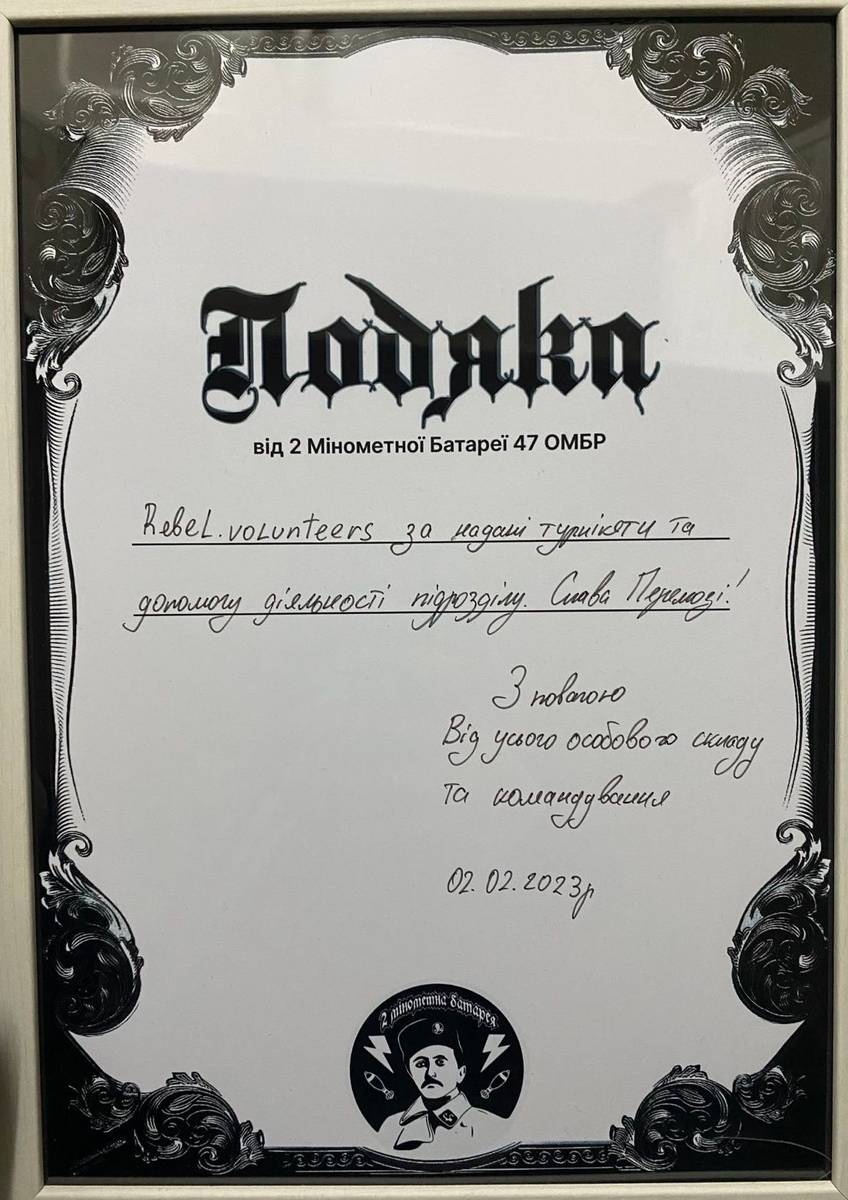 Подяка
від 2 Мінометної Батареї 47 ОМБР
Rebel.volunteers за надані турнікети та
допомогу діяльності підрозділу. Слава Перемозі!
З повагою
Від усього особового складу
та командування
02.02.2023р
2 мінометна батарея